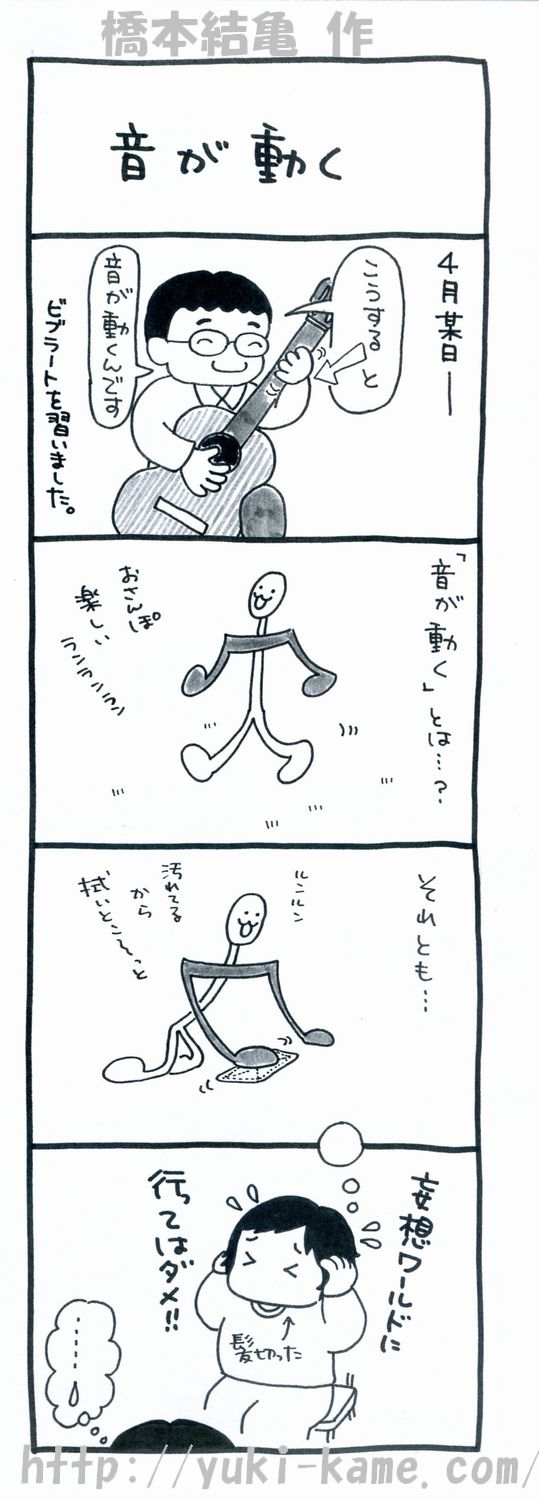 橋本結亀 作
音が動く
4月某日―
こうすると
音が動くんです
ビブラートを習いました。
「音が動く」とは…?
おさんぽ
楽しい
ランランラン
それとも…
ルンルン
汚れてる
から
拭いとこ〜っと
妄想ワールドに
行ってはダメ!!
髪切った
http://yuki-kame.com/